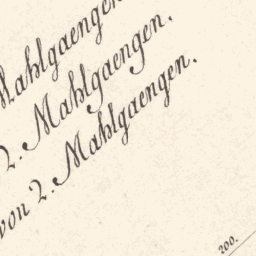 Mahlgaengen
2. Mahlgaengen.
von 2. Mahlgaengen.
200.